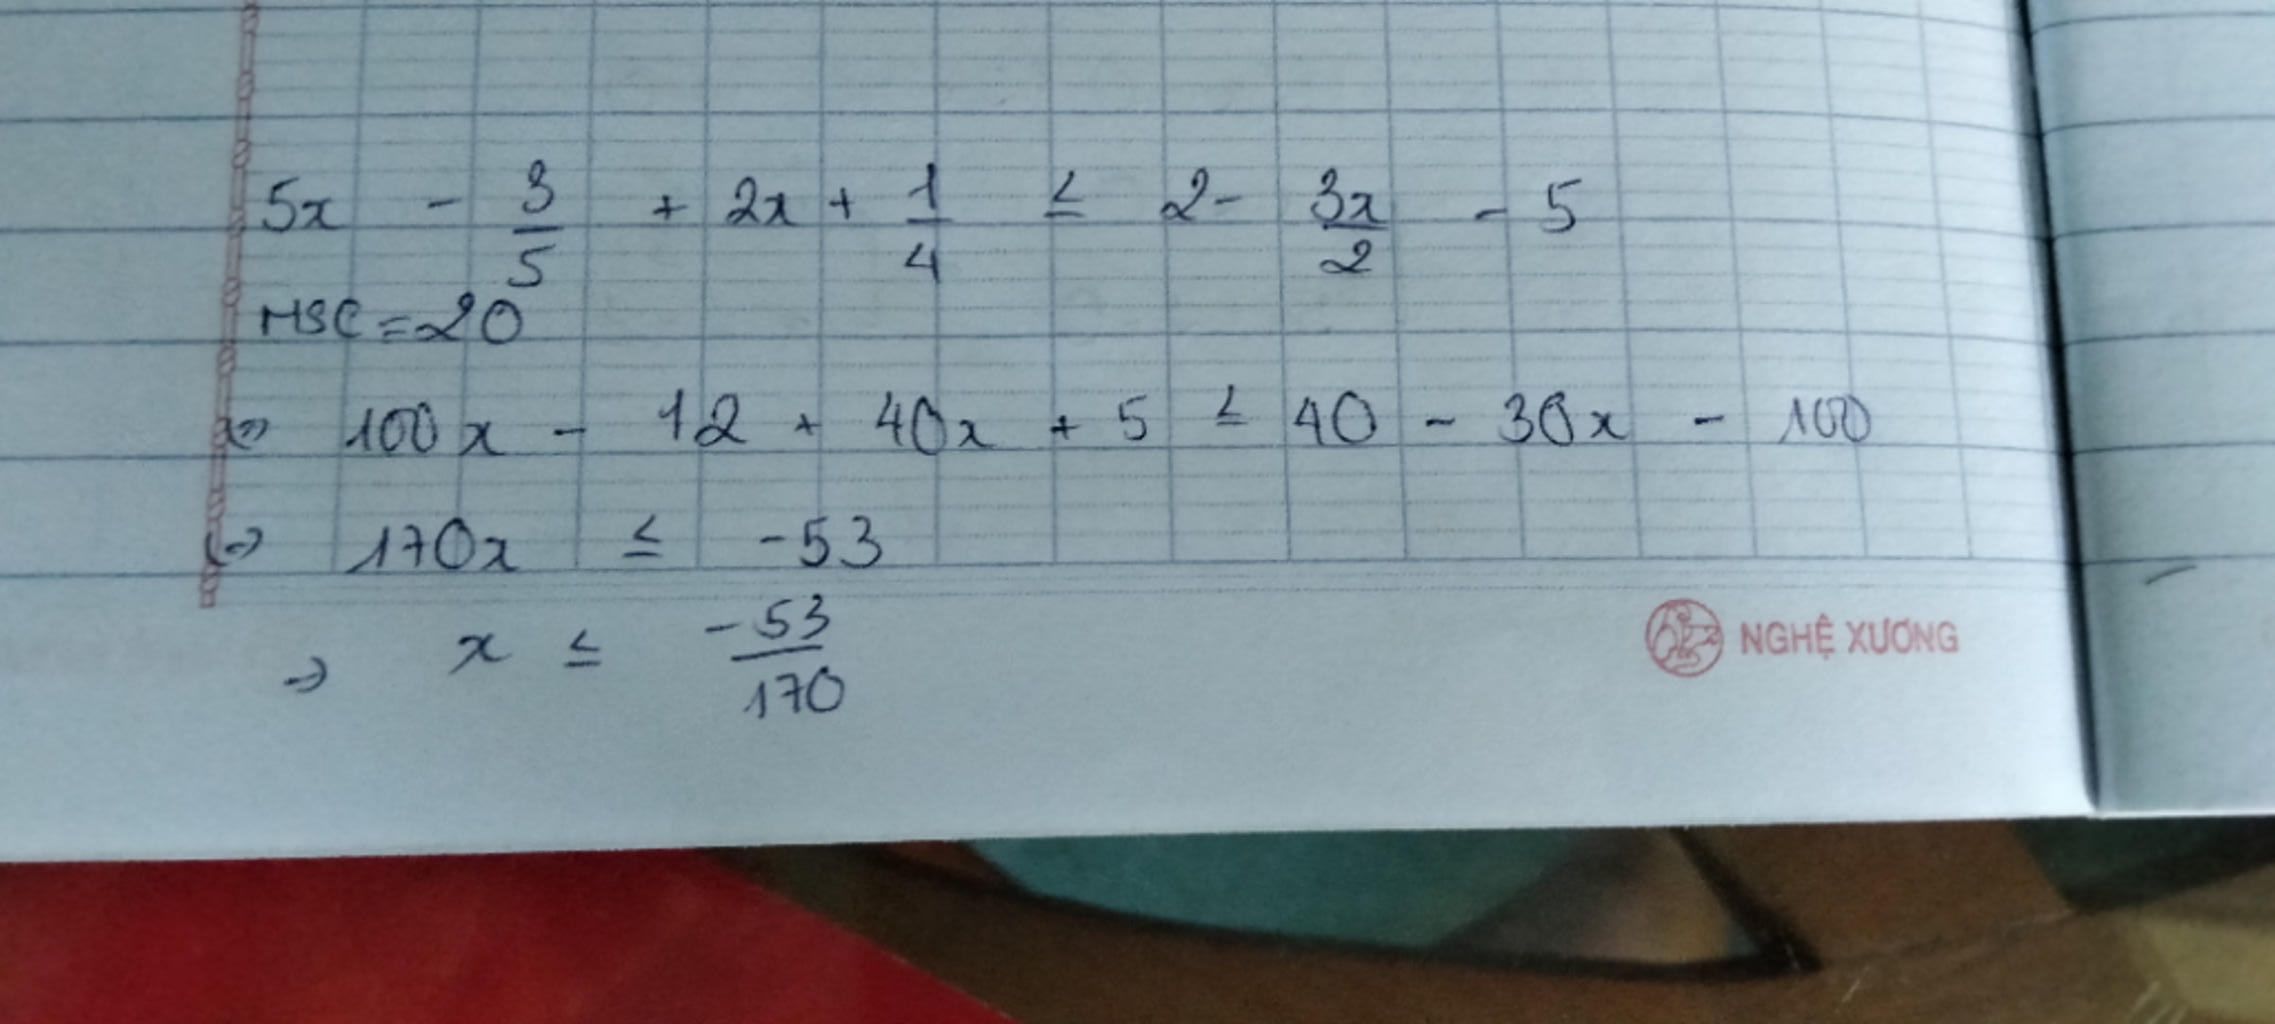 5x - 3/5 + 2x + 1/4 ≤ 2 - 3x/2 - 5
MSC = 20
⇔ 100x - 12 + 40x + 5 ≤ 40 - 30x - 100
⇔ 170x ≤ -53
⇒ x ≤ -53/170
NGHỆ XƯƠNG